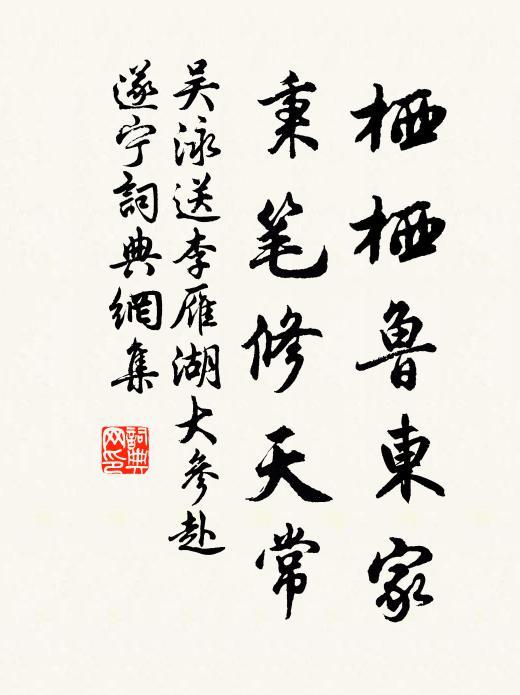 栖栖魯東家
秉笔修天常
吴泳送李雁湖大參赴
遂宁詞典網集
詞典网印